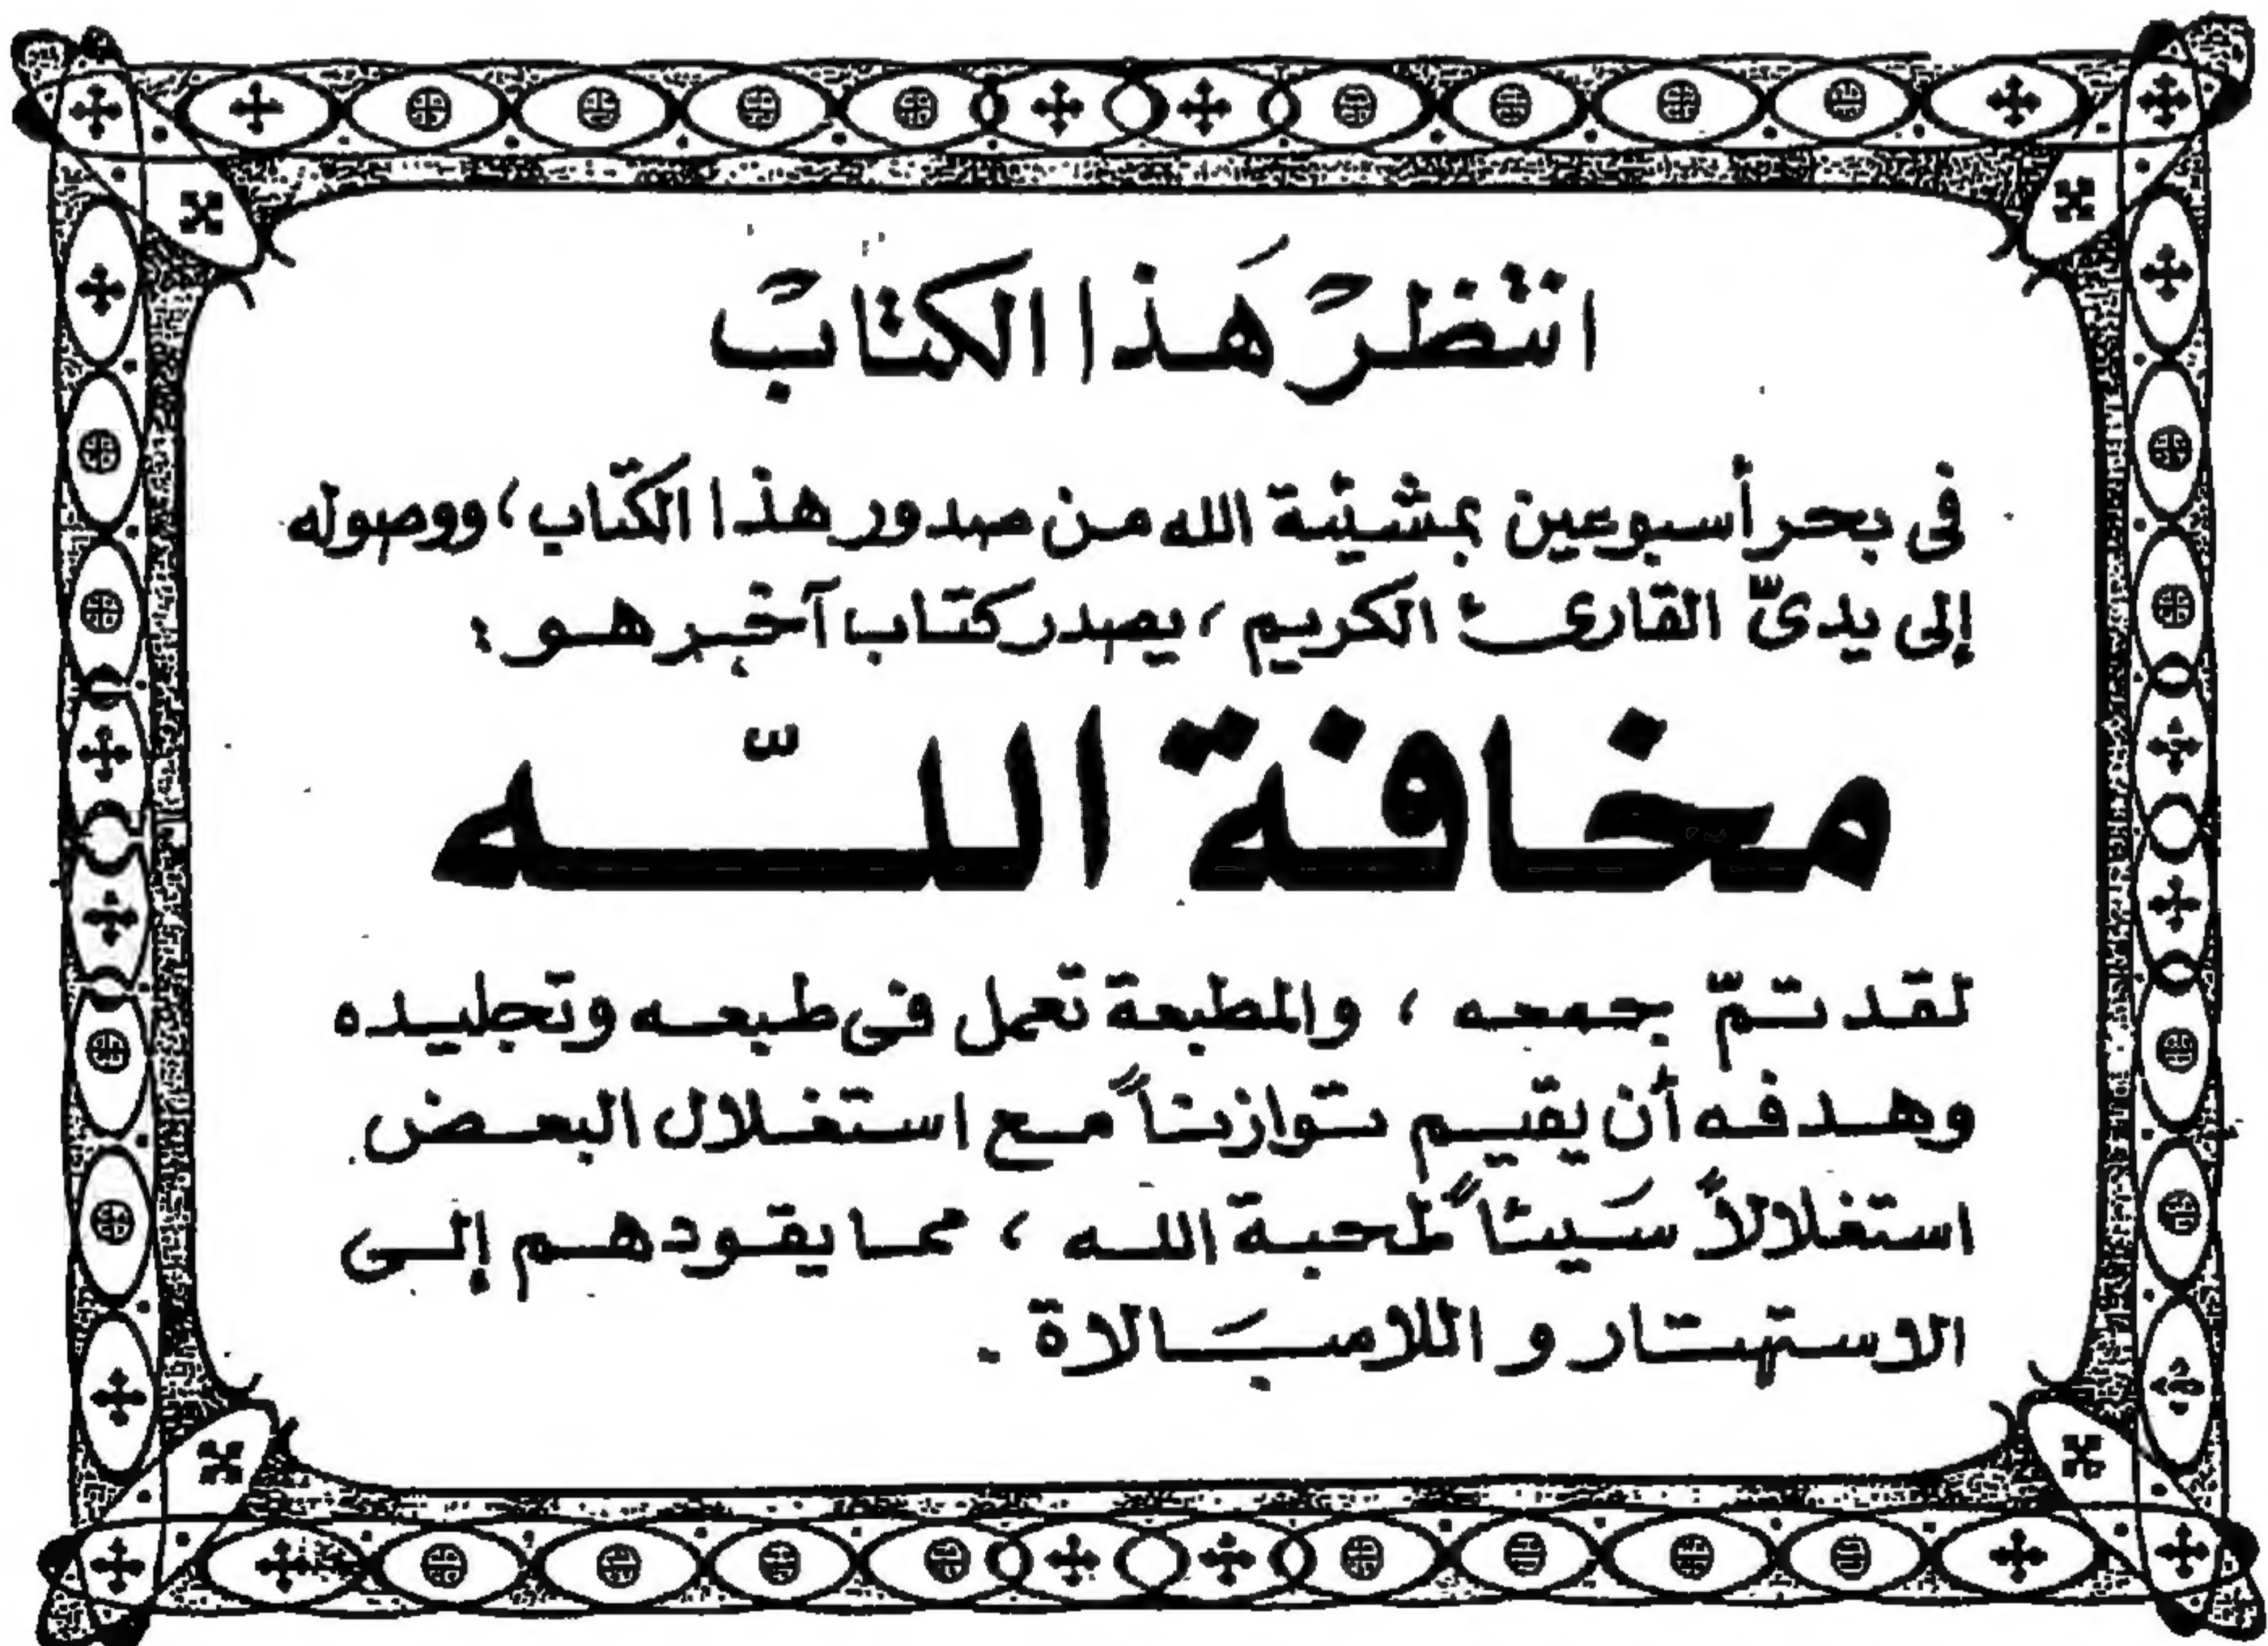 انتظرْ هَذا الكتابْ
فى بحر أسبوعين بمشيئة الله من صدور هذا الكتاب، ووصوله
إلى يدىّ القارئ الكريم، يصدر كتاب آخر هو:
مخافة اللّه
لقد تمّ جمعه، والمطبعة تعمل فى طبعه وتجليده
وهدفه أن يقيم توازناً مع استغلال البعض
استغلالاً سَيئاً لمحبة الله، مما يقودهم إلى
الاستهتار واللامبَالاة.